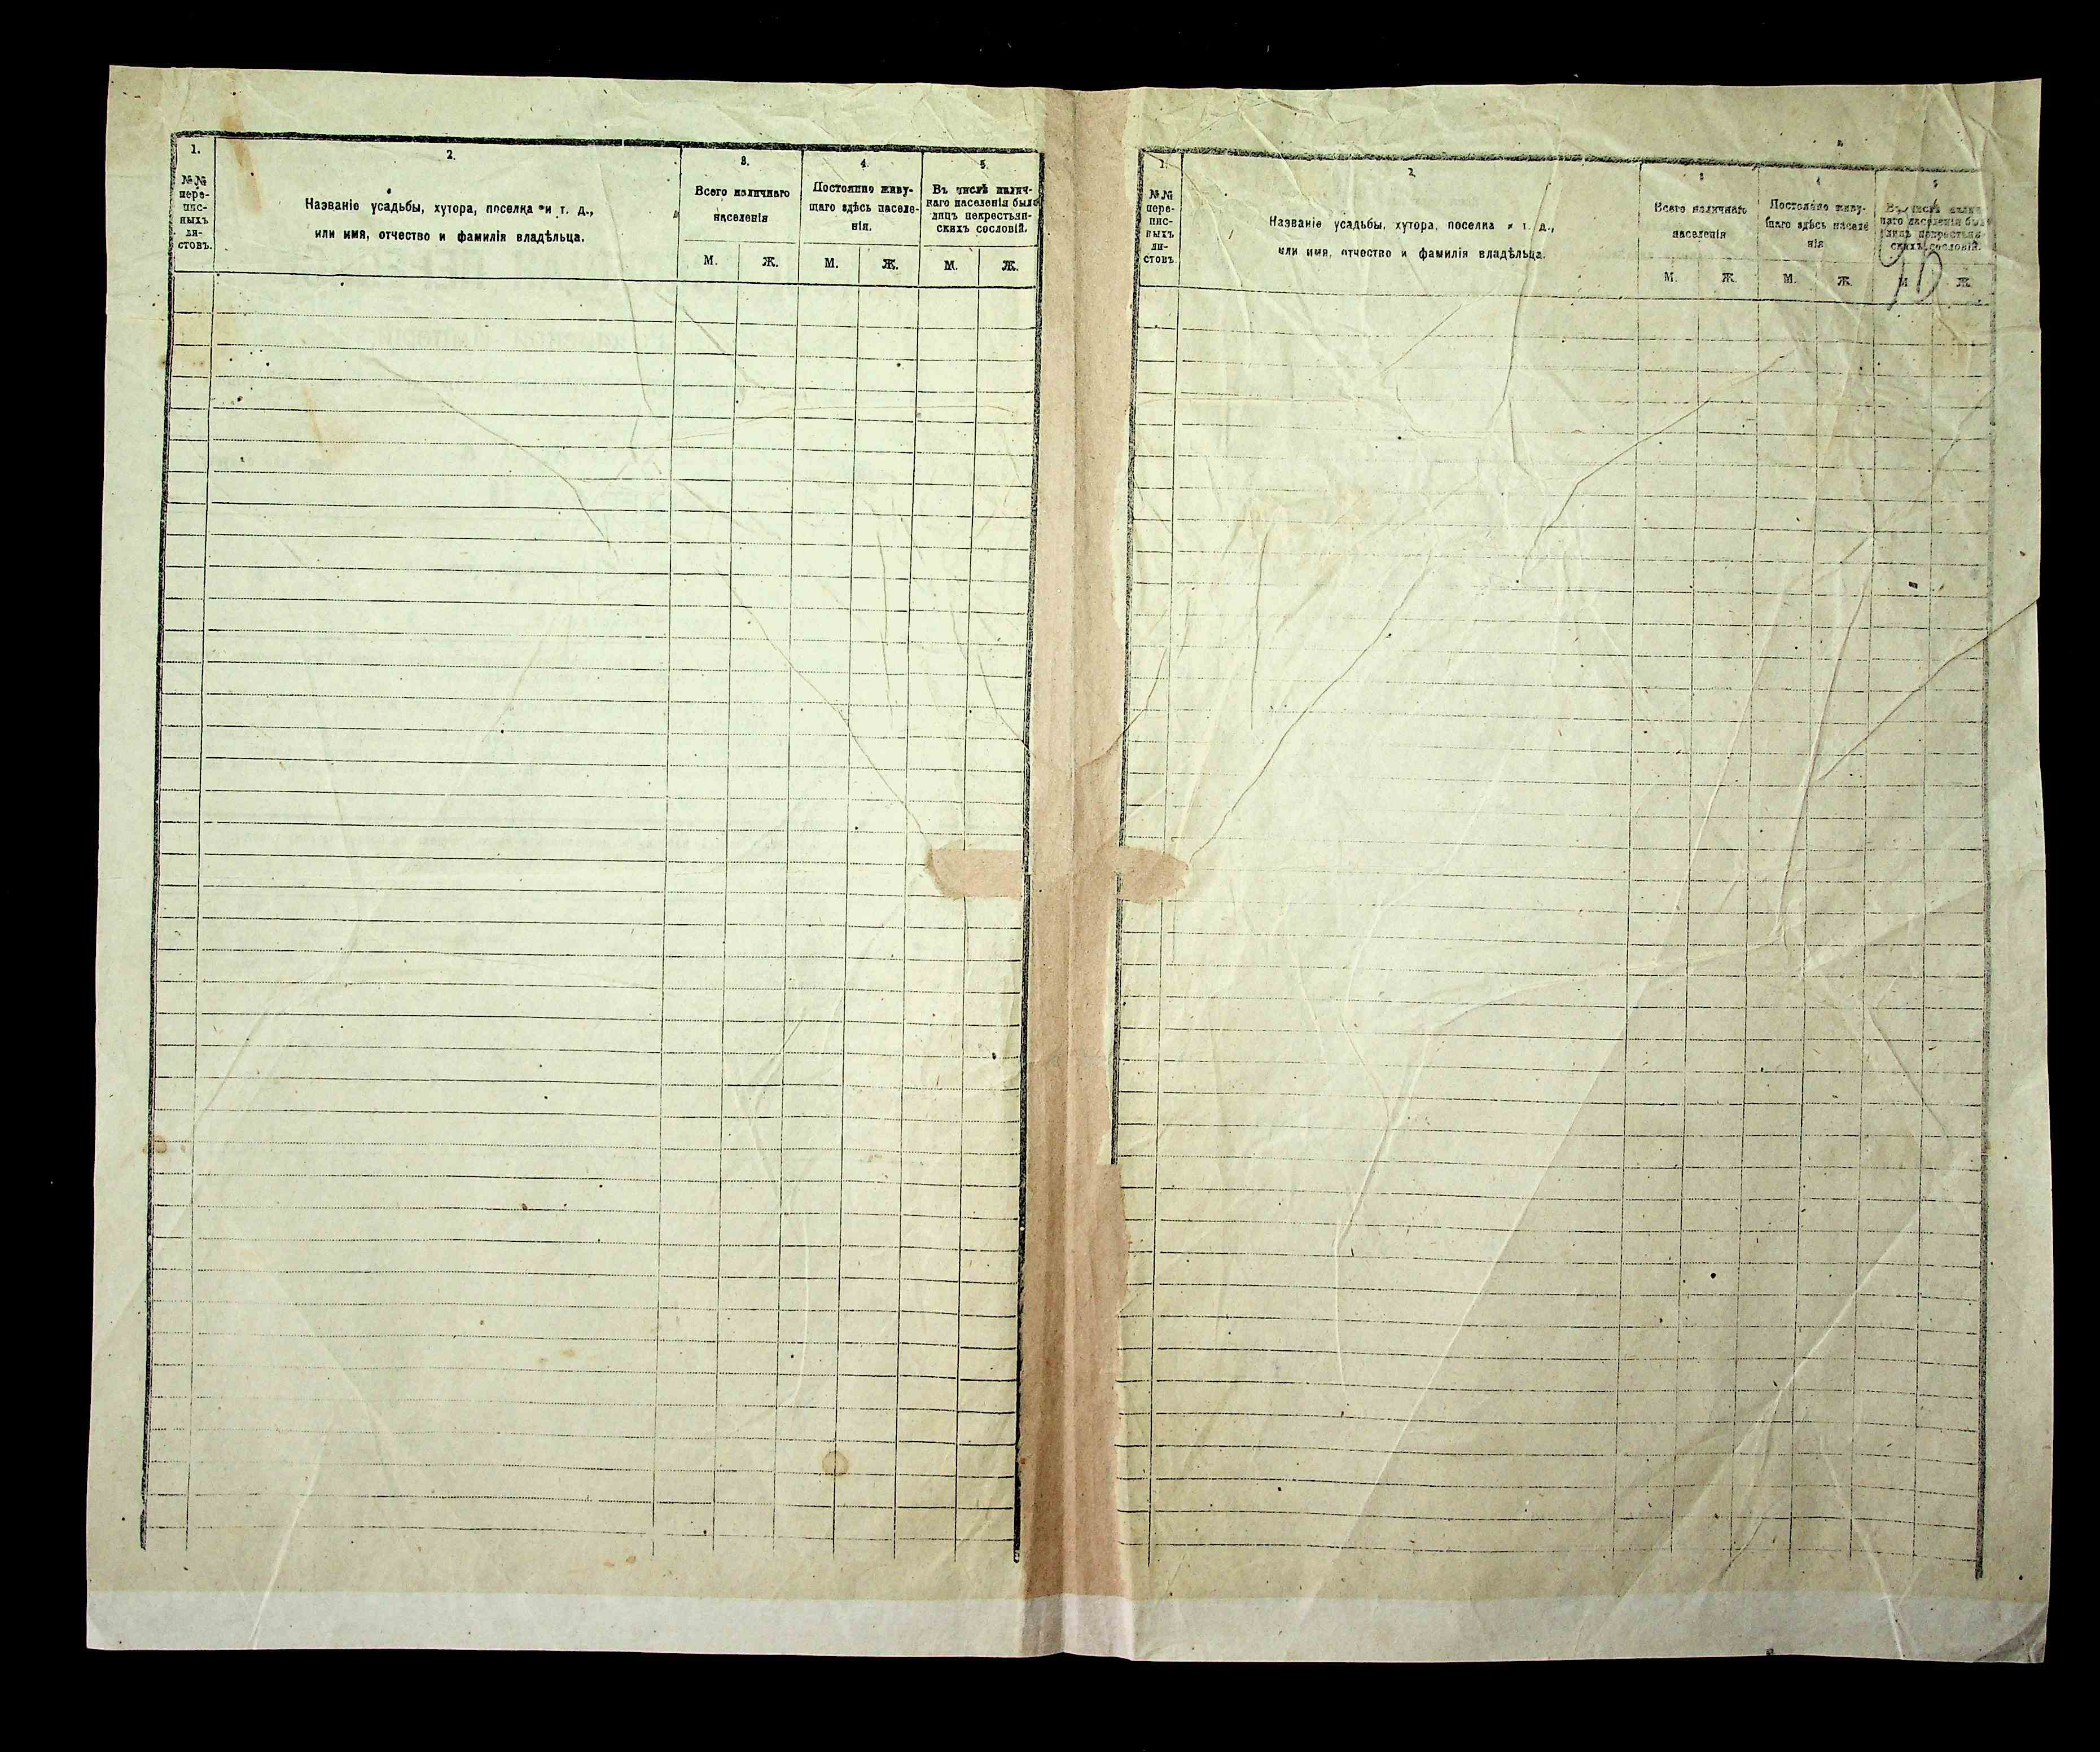 1.
№№
пере-
пис-
ныхъ
ли-
стовъ.
2.
Названіе усадьбы, хутора, поселка и т. д.,
или имя, отчество и фамилія владѣльца.
3.
Всего наличнаго
населенія
М. Ж.
4
Постоянно живу-
щаго здѣсь населе-
нія.
М. Ж.
5.
Въ числѣ налич-
наго населенія было
лицъ некрестьян-
скихъ сословій.
М. Ж.
1.
№№
пере-
пис-
ныхъ
ли-
стовъ
2
Названіе усадьбы, хутора, поселка и т. д.,
или имя, отчество и фамилія владѣльца.
3
Всего наличнаго
населенія
М. Ж.
4
Постоянно живу-
щаго здѣсь населе
нія
М. Ж.
5
Въ числѣ налич
наго населенія было
лицъ некрестьян
скихъ сословій.
М Ж.